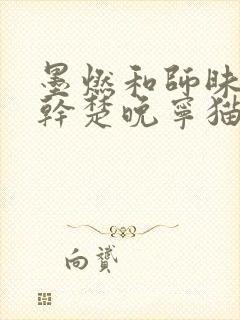 墨燃和師昧
幹楚晚寧猫
向贇